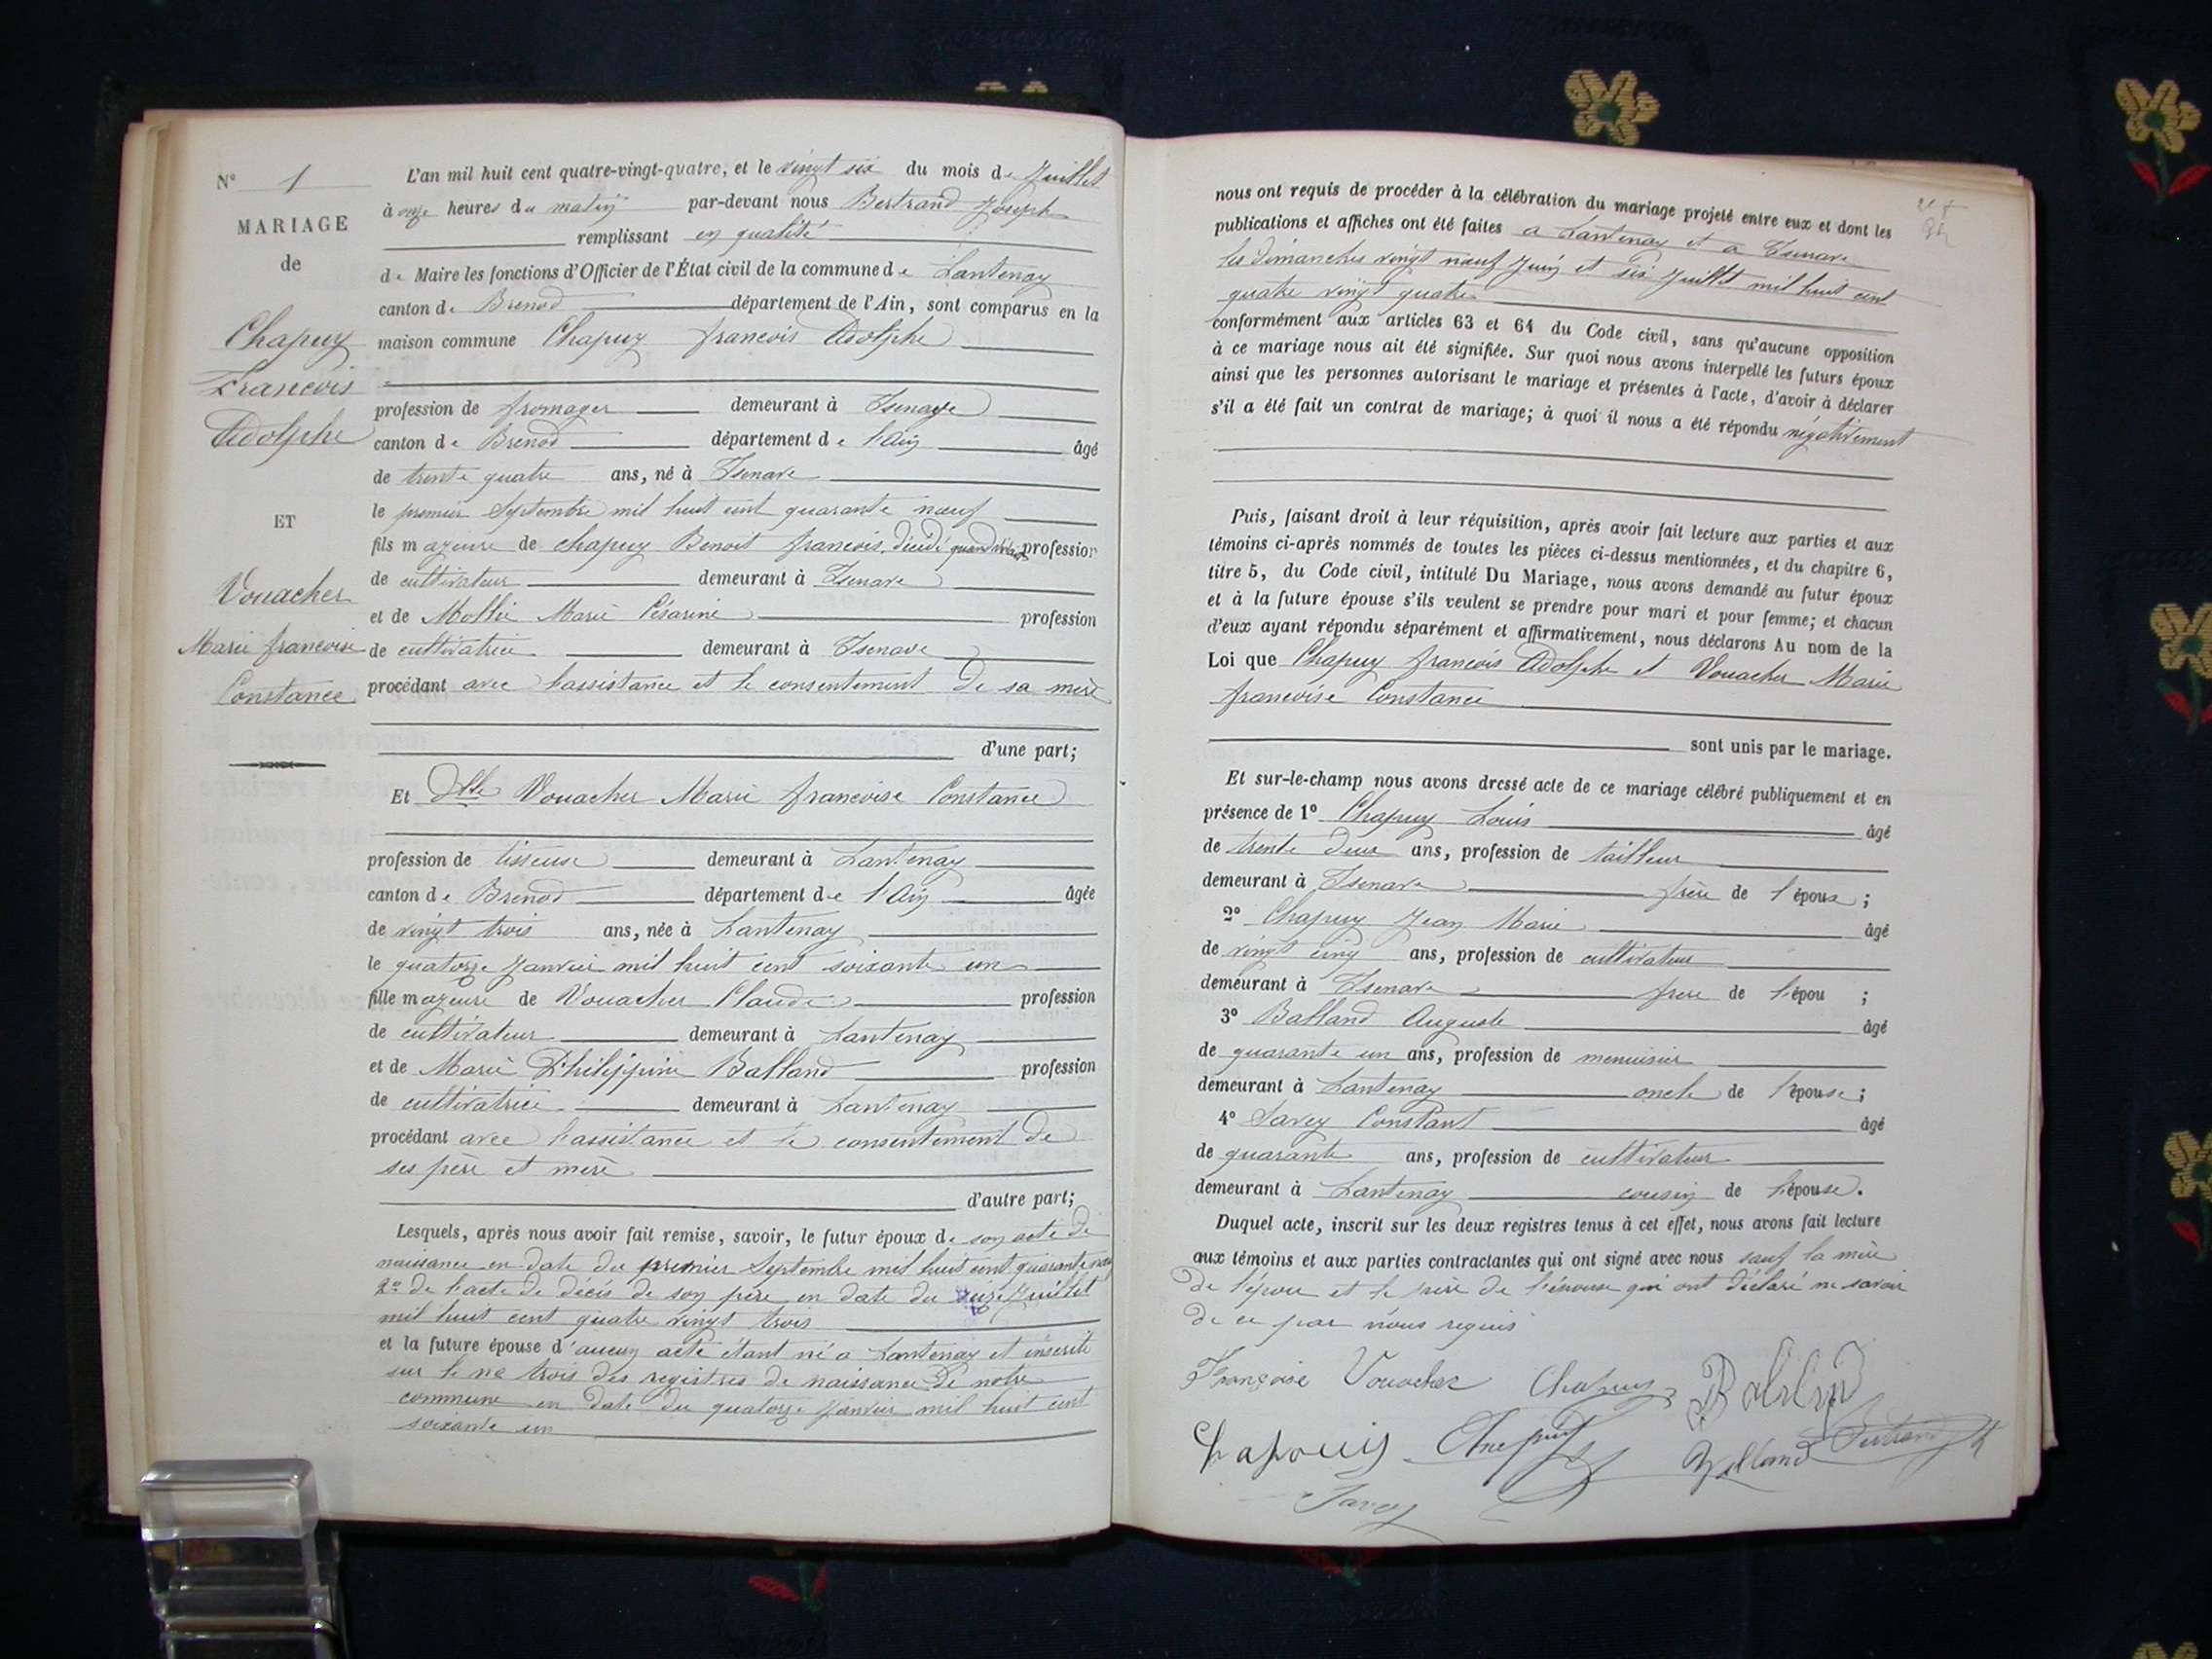 N° 1
MARIAGE
de
Chapuy
Francois
Adolphe
ET
Vouacher
Marie francoise
Constance
L'an mil huit cent quatre-vingt-quatre, et le vingt six du mois de Juillet
à onze heures du matin par-devant nous Bertrand Joseph
remplissant en qualité
de Maire les fonctions d'Officier de l'État civil de la commune de Lantenay
canton de Brenod département de l'Ain, sont comparus en la
maison commune Chapuy francois Adolphe
profession de fromager demeurant à Isenave
canton de Brenod département de l'Ain âgé
de trente quatre ans, né à Isenave
le premier Septembre mil huit cent quarante neuf
fils majeure de chapuy Benoit francois, décédé quand vivait profession
de cultivateur demeurant à Isenave
et de Mollie Marie Césarine profession
de cultivatrice demeurant à Isenave
procédant avec l'assistance et le consentement de sa mère
d'une part;
Et Dlle Vouacher Marie francoise Constance
profession de tisseuse demeurant à Lantenay
canton de Brenod département de l'Ain âgée
de vingt trois ans, née à Lantenay
le quatorze Janvier mil huit cent soixante un
fille majeure de Vouacher Claude profession
de cultivateur demeurant à Lantenay
et de Marie Philippine Balland profession
de cultivatrice demeurant à Lantenay
procédant avec l'assistance et le consentement de
ses père et mère
d'autre part;
Lesquels, après nous avoir fait remise, savoir, le futur époux de son acte de
naissance en date du premier Septembre mil huit cent quarante neuf
2° de l'acte de décès de son père en date du Juillet
mil huit cent quatre vingt trois
et la future épouse d'aucun acte étant né a Lantenay et inscrite
sur le no trois des registres de naissance de notre
commune en date du quatorze Janvier mil huit cent
soixante un
nous ont requis de procéder à la célébration du mariage projeté entre eux et dont les
publications et affiches ont été faites a Lantenay et a Isenave
les dimanches vingt neuf Juin et six Juillet mil huit cent
quatre vingt quatre
conformément aux articles 63 et 64 du Code civil, sans qu'aucune opposition
à ce mariage nous ait été signifiée. Sur quoi nous avons interpellé les futurs époux
ainsi que les personnes autorisant le mariage et présentes à l'acte, d'avoir à déclarer
s'il a été fait un contrat de mariage; à quoi il nous a été répondu négativement
Puis, faisant droit à leur réquisition, après avoir fait lecture aux parties et aux
témoins ci-après nommés de toutes les pièces ci-dessus mentionnées, et du chapitre 6,
titre 5, du Code civil, intitulé Du Mariage, nous avons demandé au futur époux
et à la future épouse s'ils veulent se prendre pour mari et pour femme; et chacun
d'eux ayant répondu séparément et affirmativement, nous déclarons Au nom de la
Loi que Chapuy francois Adolphe et Vouacher Marie
francoise Constance
sont unis par le mariage.
Et sur-le-champ nous avons dressé acte de ce mariage célébré publiquement et en
présence de 1° Chapuy Louis âgé
de trente deux ans, profession de tailleur
demeurant à Isenave frère de l'époux ;
2° Chapuy Jean Marie âgé
de vingt cinq ans, profession de cultivateur
demeurant à Isenave frere de l'épou ;
3° Balland Auguste âgé
de quarante un ans, profession de menuisier
demeurant à Lantenay oncle de l'épouse;
4° Savey Constant âgé
de quarante ans, profession de cultivateur
demeurant à Lantenay cousin de l'épouse.
Duquel acte, inscrit sur les deux registres tenus à cet effet, nous avons fait lecture
aux témoins et aux parties contractantes qui ont signé avec nous sauf la mère
de l'épou et le père de l'épouse qui ont déclaré ne savoir
de ce par nous requis
Françoise Vouacher Chapuy
Chapouis Chapuy Balland Bertrand
Savey